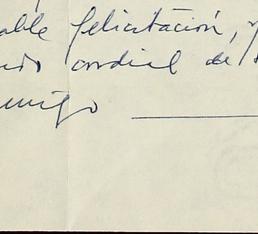 able felicitación, y
udo cordial de s
amigo